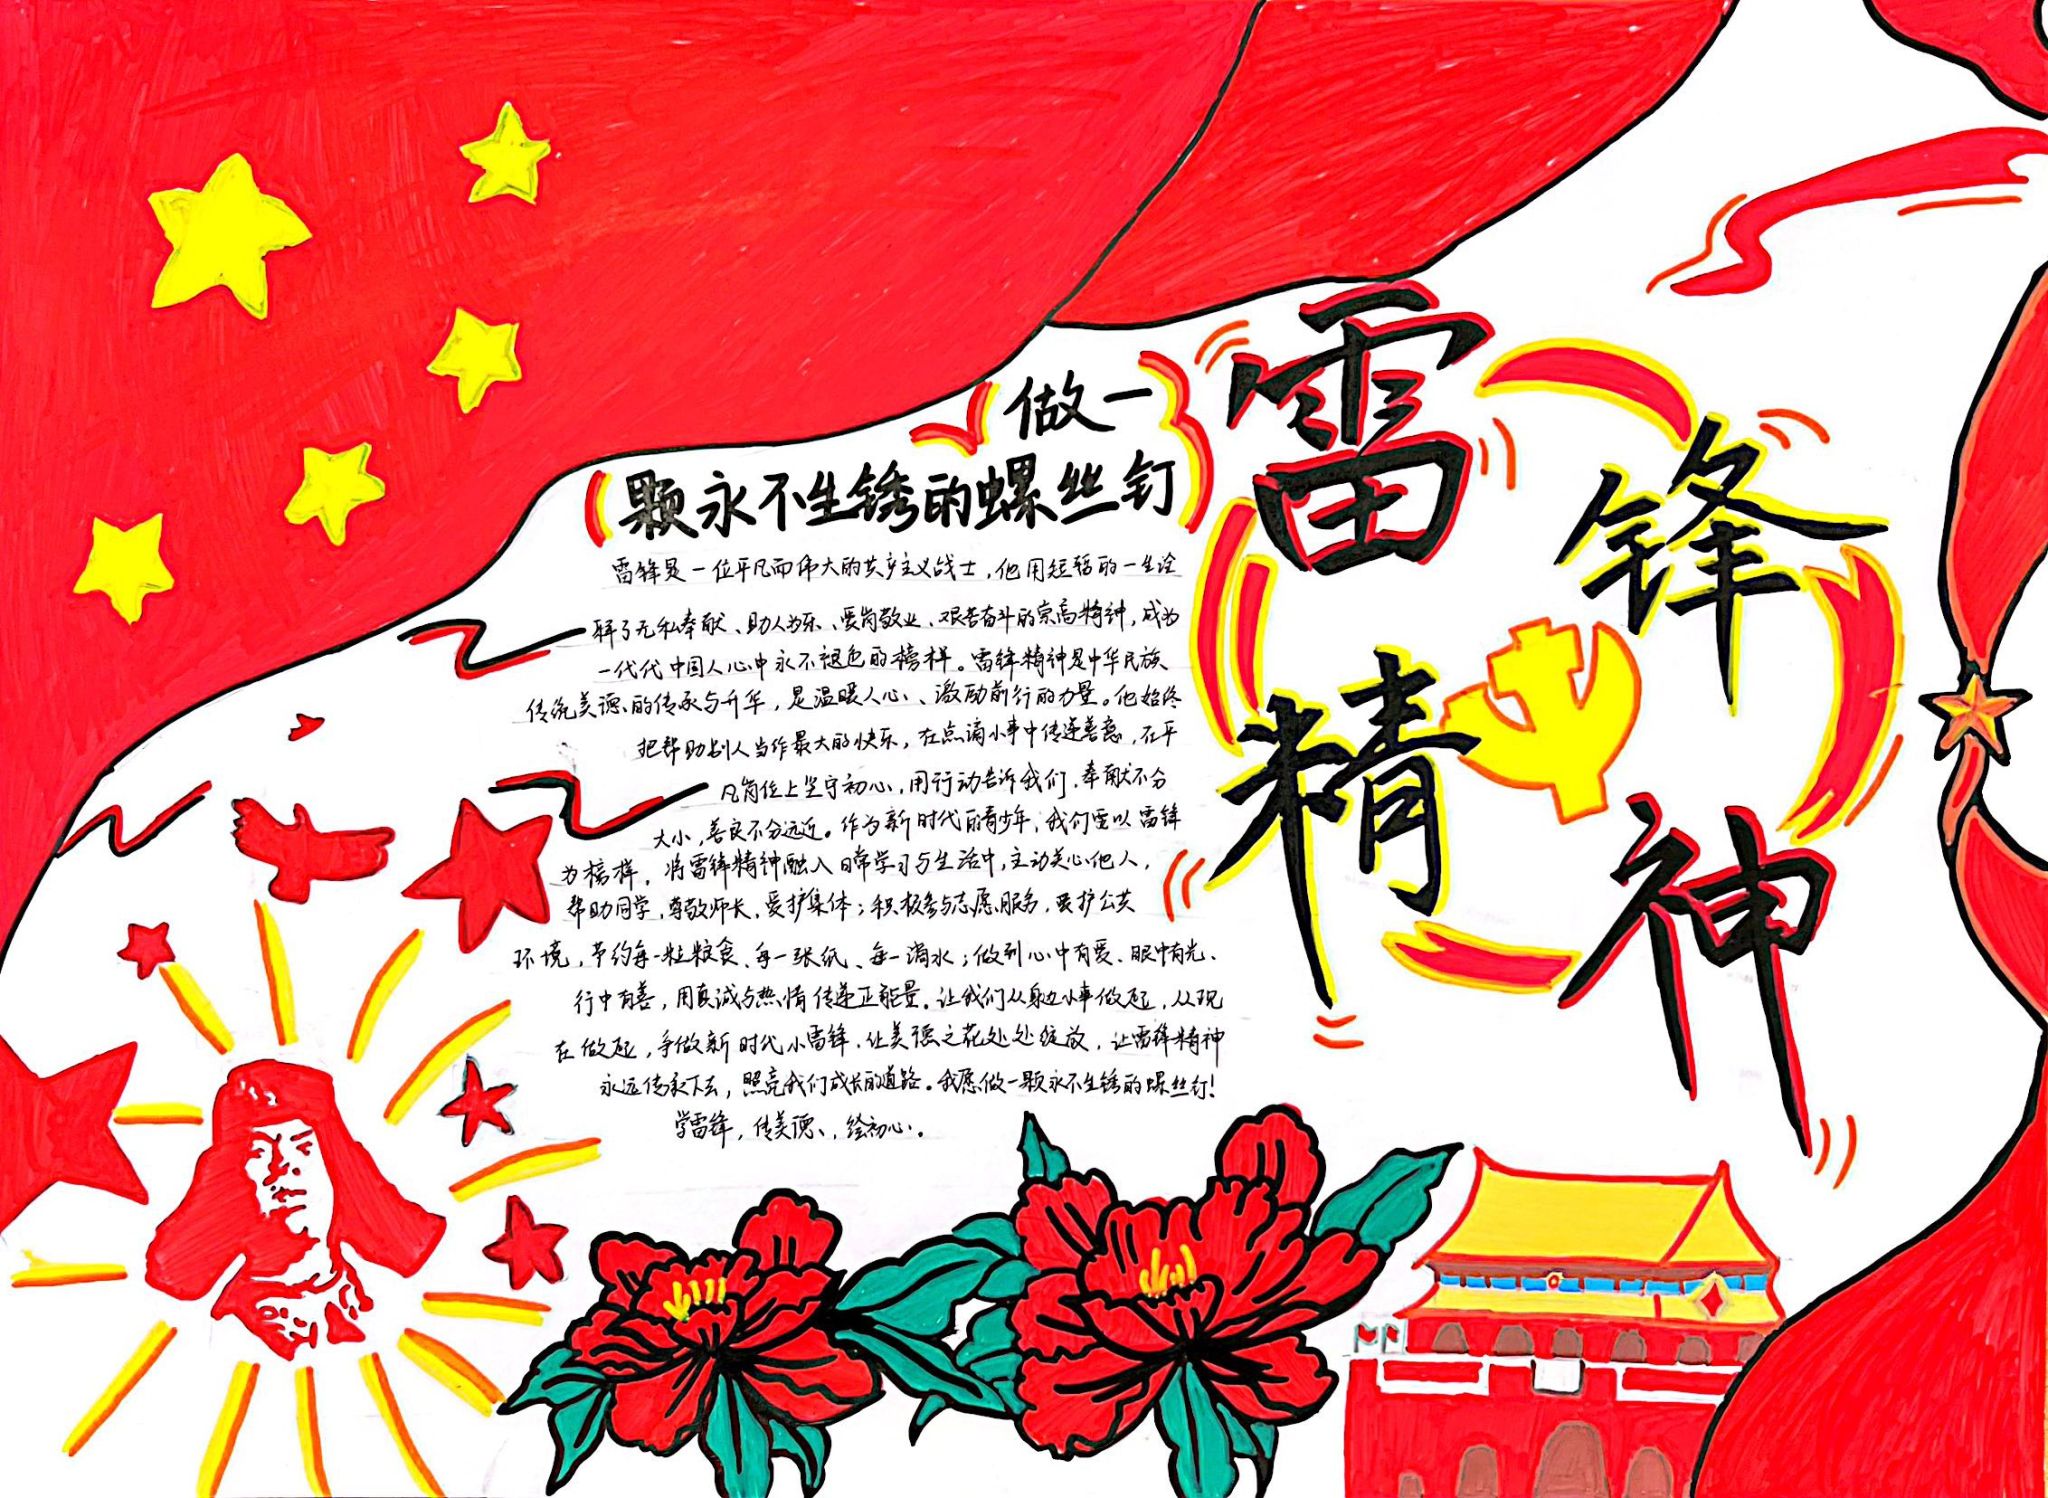 雷锋
精神
做一
颗永不生锈的螺丝钉
雷锋是一位平凡而伟大的共产主义战士，他用短暂的一生诠
释了无私奉献、助人为乐、爱岗敬业、艰苦奋斗的崇高精神，成为
一代代中国人心中永不褪色的榜样。雷锋精神是中华民族
传统美德的传承与升华，是温暖人心、激励前行的力量。他始终
把帮助别人当作最大的快乐，在点滴小事中传递善意，在平
凡岗位上坚守初心，用行动告诉我们，奉献不分
大小，善良不分远近。作为新时代的青少年，我们要以雷锋
为榜样，将雷锋精神融入日常学习与生活中，主动关心他人，
帮助同学，尊敬师长，爱护集体；积极参与志愿服务，爱护公共
环境，节约每一粒粮食、每一张纸、每一滴水；做到心中有爱、眼中有光、
行中有善，用真诚与热情传递正能量。让我们从身边小事做起，从现
在做起，争做新时代小雷锋，让美德之花处处绽放，让雷锋精神
永远传承下去，照亮我们成长的道路。我愿做一颗永不生锈的螺丝钉！
学雷锋，传美德，绘初心。